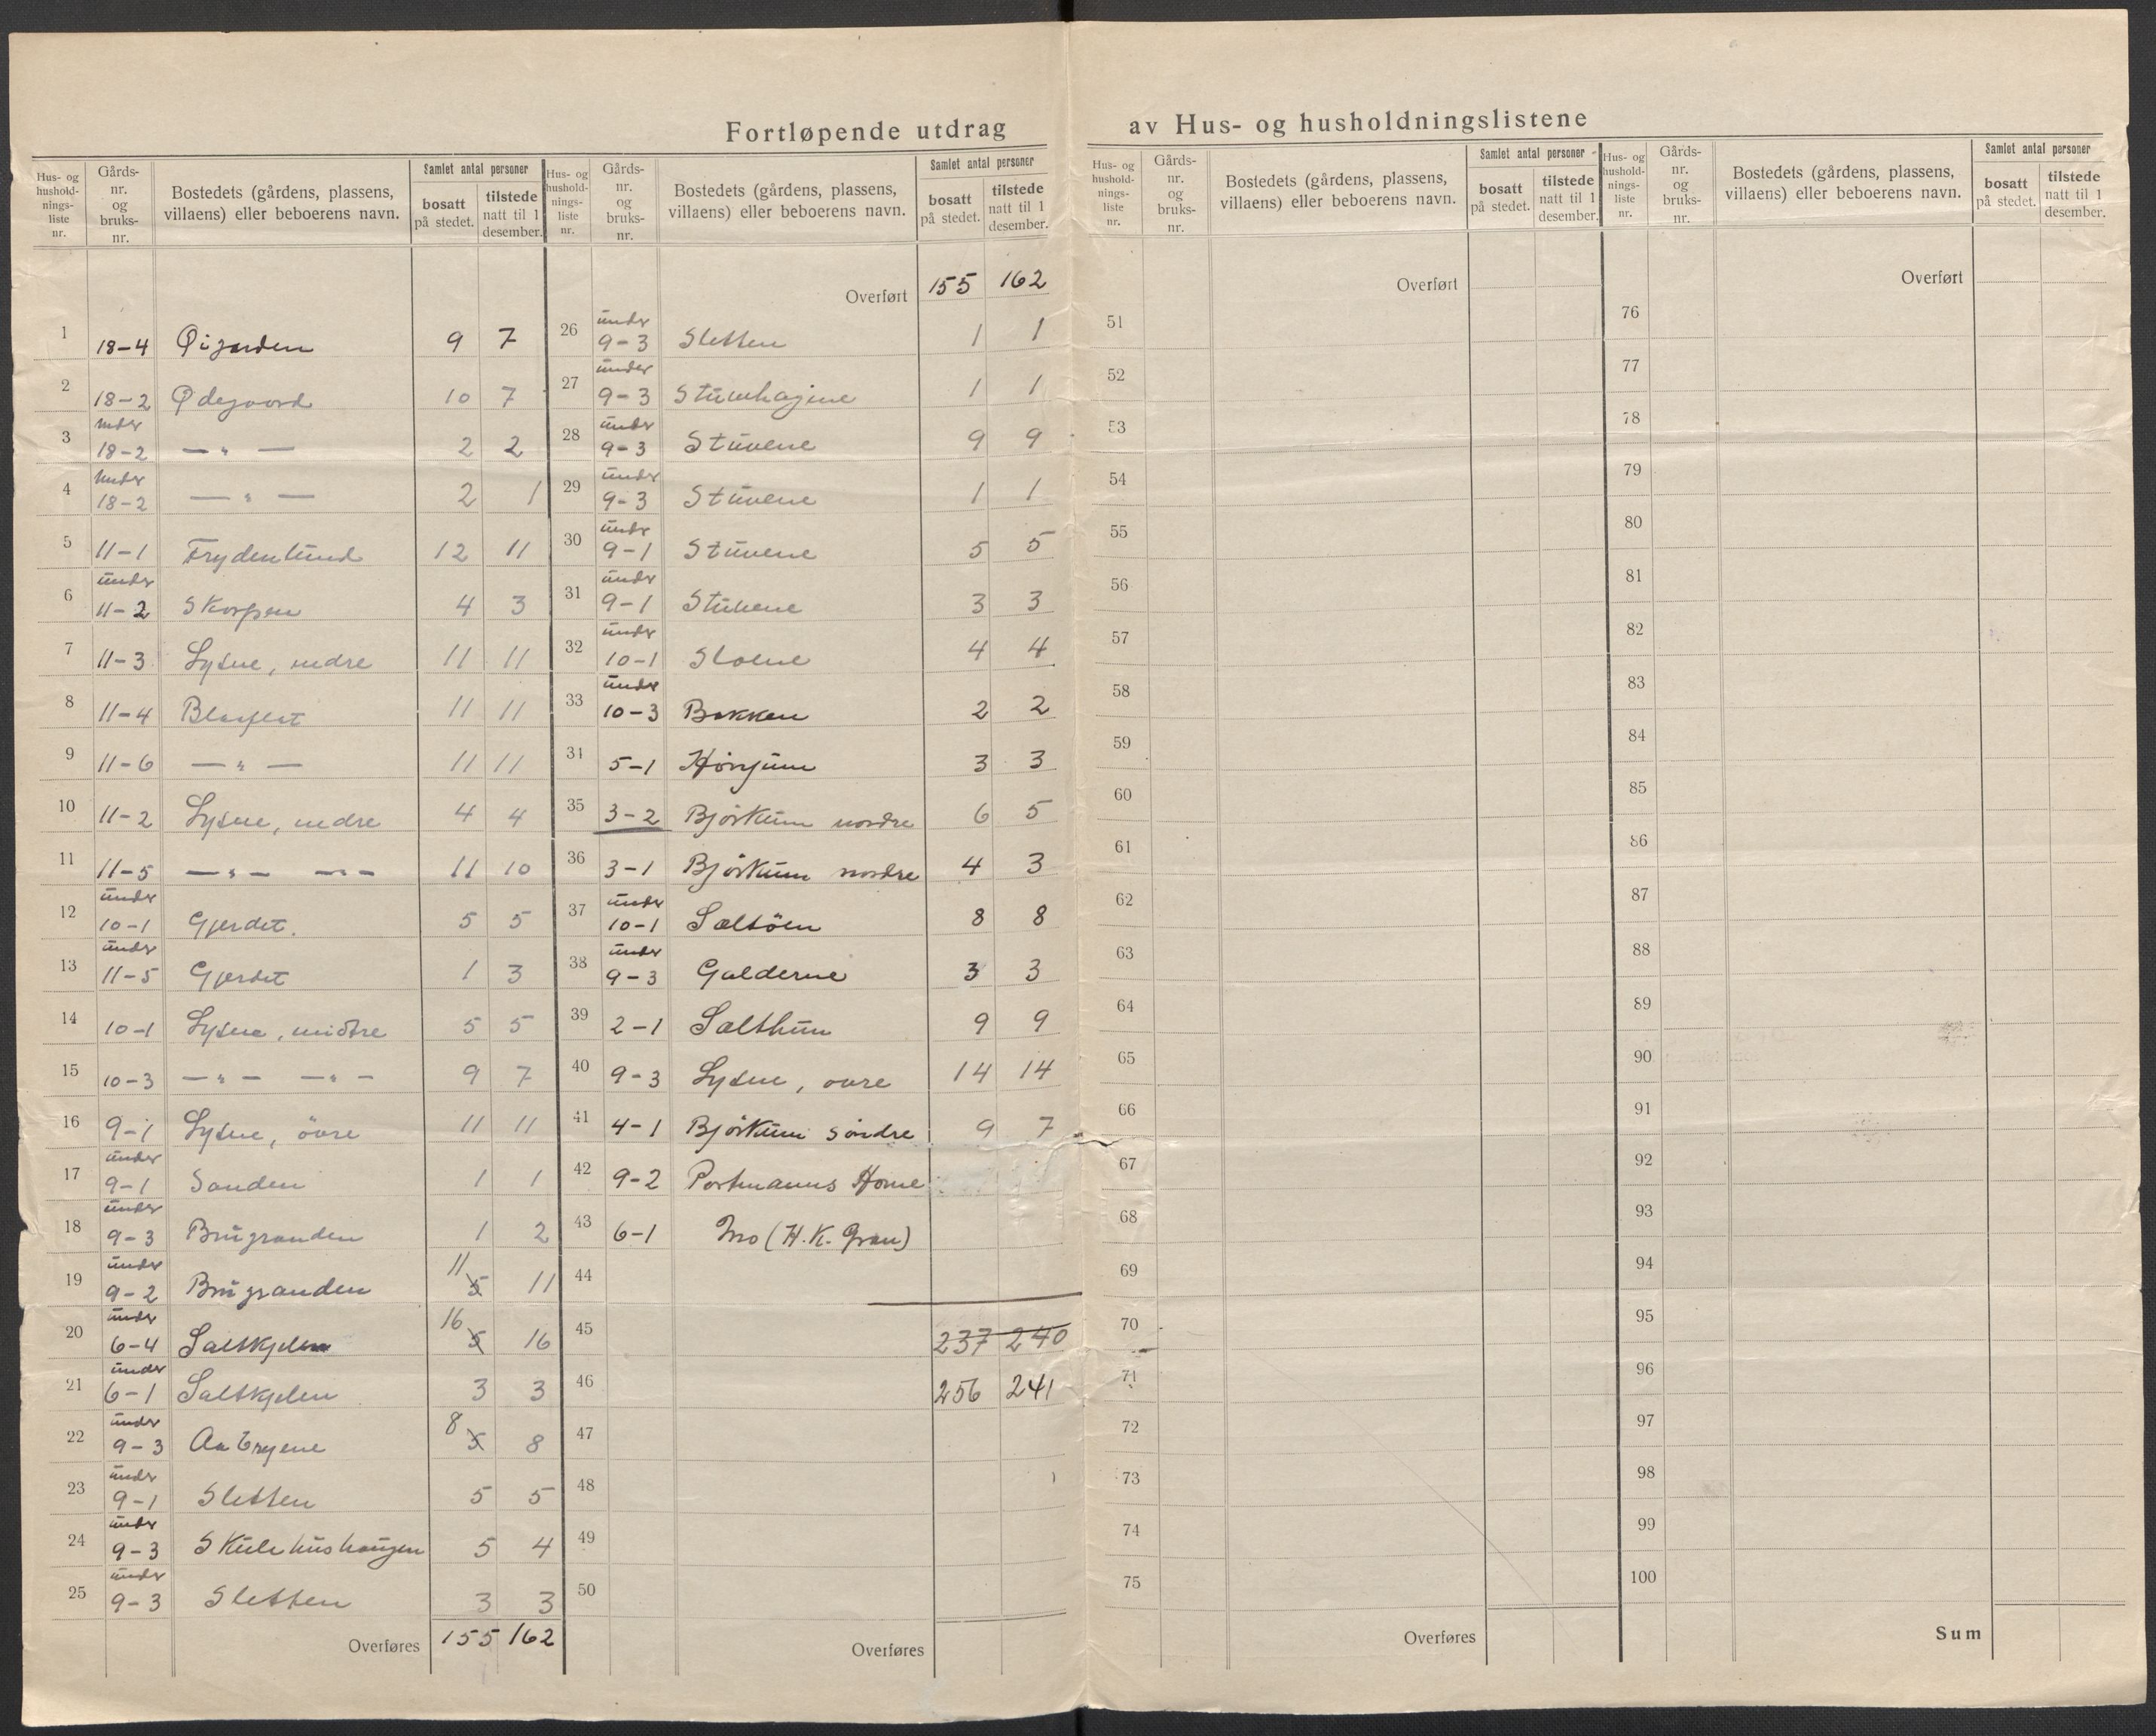 Fortløpende utdrag av Hus- og husholdningslistene
Hus- og hushold-nings-liste nr.
Gårds-nr. og bruks-nr.
Bostedets (gårdens, plassens, villaens) eller beboerens navn.
Samlet antal personer
bosatt på stedet.
tilstede natt til 1 desember.
1 18-4 Øigarden 9 7
2 18-2 Ødegaard 10 7
3 under 18-2 — " — 2 2
4 under 18-2 — " — 2 1
5 11-1 Frydenlund 12 11
6 under 11-2 Skorpen 4 3
7 11-3 Lysne, nedre 11 11
8 11-4 Blaaflat 11 11
9 11-6 — " — 11 11
10 11-2 Lysne, nedre 4 4
11 11-5 — " — — " — 11 10
12 under 10-1 Gjerdet. 5 5
13 under 11-5 Gjerdet 1 3
14 10-1 Lysne, midtre 5 5
15 10-3 — " — — " — 9 7
16 9-1 Lysne, övre 11 11
17 under 9-1 Sanden 1 1
18 under 9-3 Brügranden 1 2
19 under 9-2 Brügranden 11 5 11
20 under 6-4 Saltkjelen 16 5 16
21 under 6-1 Saltkjelen 3 3
22 under 9-3 8 5 8
23 under 9-1 Sletten 5 5
24 under 9-3 Skülehüshaügen 5 4
25 under 9-3 Sletten 3 3
Overføres 155 162
Hus- og hushold-nings-liste nr.
Gårds-nr. og bruks-nr.
Bostedets (gårdens, plassens, villaens) eller beboerens navn.
Samlet antal personer
bosatt på stedet.
tilstede natt til 1 desember.
Overført 155 162
26 under 9-3 Sletten 1 1
27 under 9-3 Stüvehagene 1 1
28 under 9-3 Stüvene 9 9
29 under 9-3 Stüvene 1 1
30 under 9-1 Stüvene 5 5
31 under 9-1 Stüvene 3 3
32 under 10-1 4 4
33 under 10-3 Bakken 2 2
31 5-1 Hönjüm 3 3
35 3-2 Björküm nordre 6 5
36 3-1 Björküm nordre 4 3
37 under 10-1 Saltöen 8 8
38 under 9-3 Galderne 3 3
39 2-1 Salthün 9 9
40 9-3 Lysne, övre 14 14
41 4-1 Björküm söndre 9 7
42 9-2 Portmanns Home
43 6-1 Mo (H. K. Gran)
44
45 237 240
46 256 241
47
48
49
50
Overføres
Hus- og hushold-nings-liste nr.
Gårds-nr. og bruks-nr.
Bostedets (gårdens, plassens, villaens) eller beboerens navn.
Samlet antal personer
bosatt på stedet.
tilstede natt til 1 desember.
Overført
51
52
53
54
55
56
57
58
59
60
61
62
63
64
65
66
67
68
69
70
71
72
73
74
75
Overføres
Hus- og hushold-nings-liste nr.
Gårds-nr. og bruks-nr.
Bostedets (gårdens, plassens, villaens) eller beboerens navn.
Samlet antal personer
bosatt på stedet.
tilstede natt til 1 desember.
Overført
76
77
78
79
80
81
82
83
84
85
86
87
88
89
90
91
92
93
94
95
96
97
98
99
100
Sum